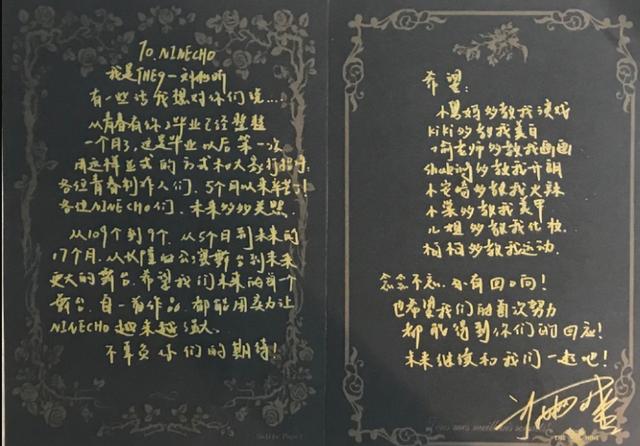 TO. NINECHO
我是THE9-刘雨昕
有一些话我想对你们说...
从青春有你2毕业已经整整
一个月了,这是毕业以后第一次
用这样正式的方式和大家打招呼,
各位青春制作人们,5个月以来辛苦!
各位NINECHO们,未来多多关照
从109个到9个,从5个月到未来的
17个月,从长隆的公演舞台到未来
更大的舞台,希望我们未来的每个
舞台,每一首作品,都能用实力让
NINECHO越来越强大
不辜负你们的期待!
希望:
多教我演戏
KiKi多教我美白
老师多教我画画
Shaking多教我开朗
小安崎多教我火辣
小棠多教我美甲
儿姐多教我化妆
多教我运动
念念不忘,必有回响!
也希望我们的每次努力
都能得到你们的回应!
未来继续和我们一起吧!
THE NINE